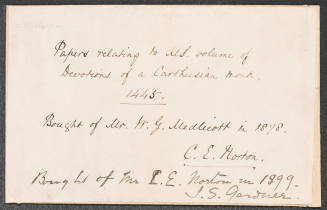 Papers relating to MS. volume of
Devotions of a Carthusian monk.
1445.
Bought of Mr. W. G. Medlicott in 1878.
C. E. Norton.
Bought of Mr C. E. Norton in 1899.
I. S. Gardner.